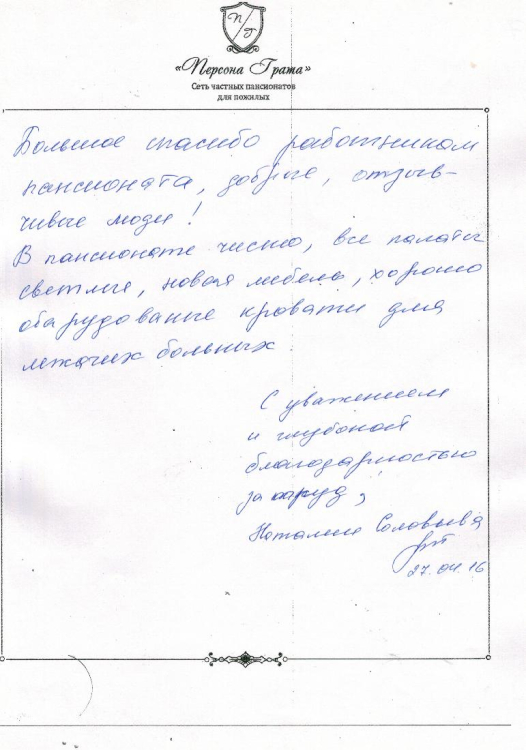 П/Г
«Персона Грата»
Сеть частных пансионатов
для пожилых
Большое спасибо работникам
пансионата, добрые, отзыв-
чивые люди!
В пансионате чисто, все палаты
светлые, новая мебель, хорошо
оборудованые кровати для
лежачих больных.
С уважением
и глубокой
благодарностью
за труд,
Наталия Соловьева
27.04.16